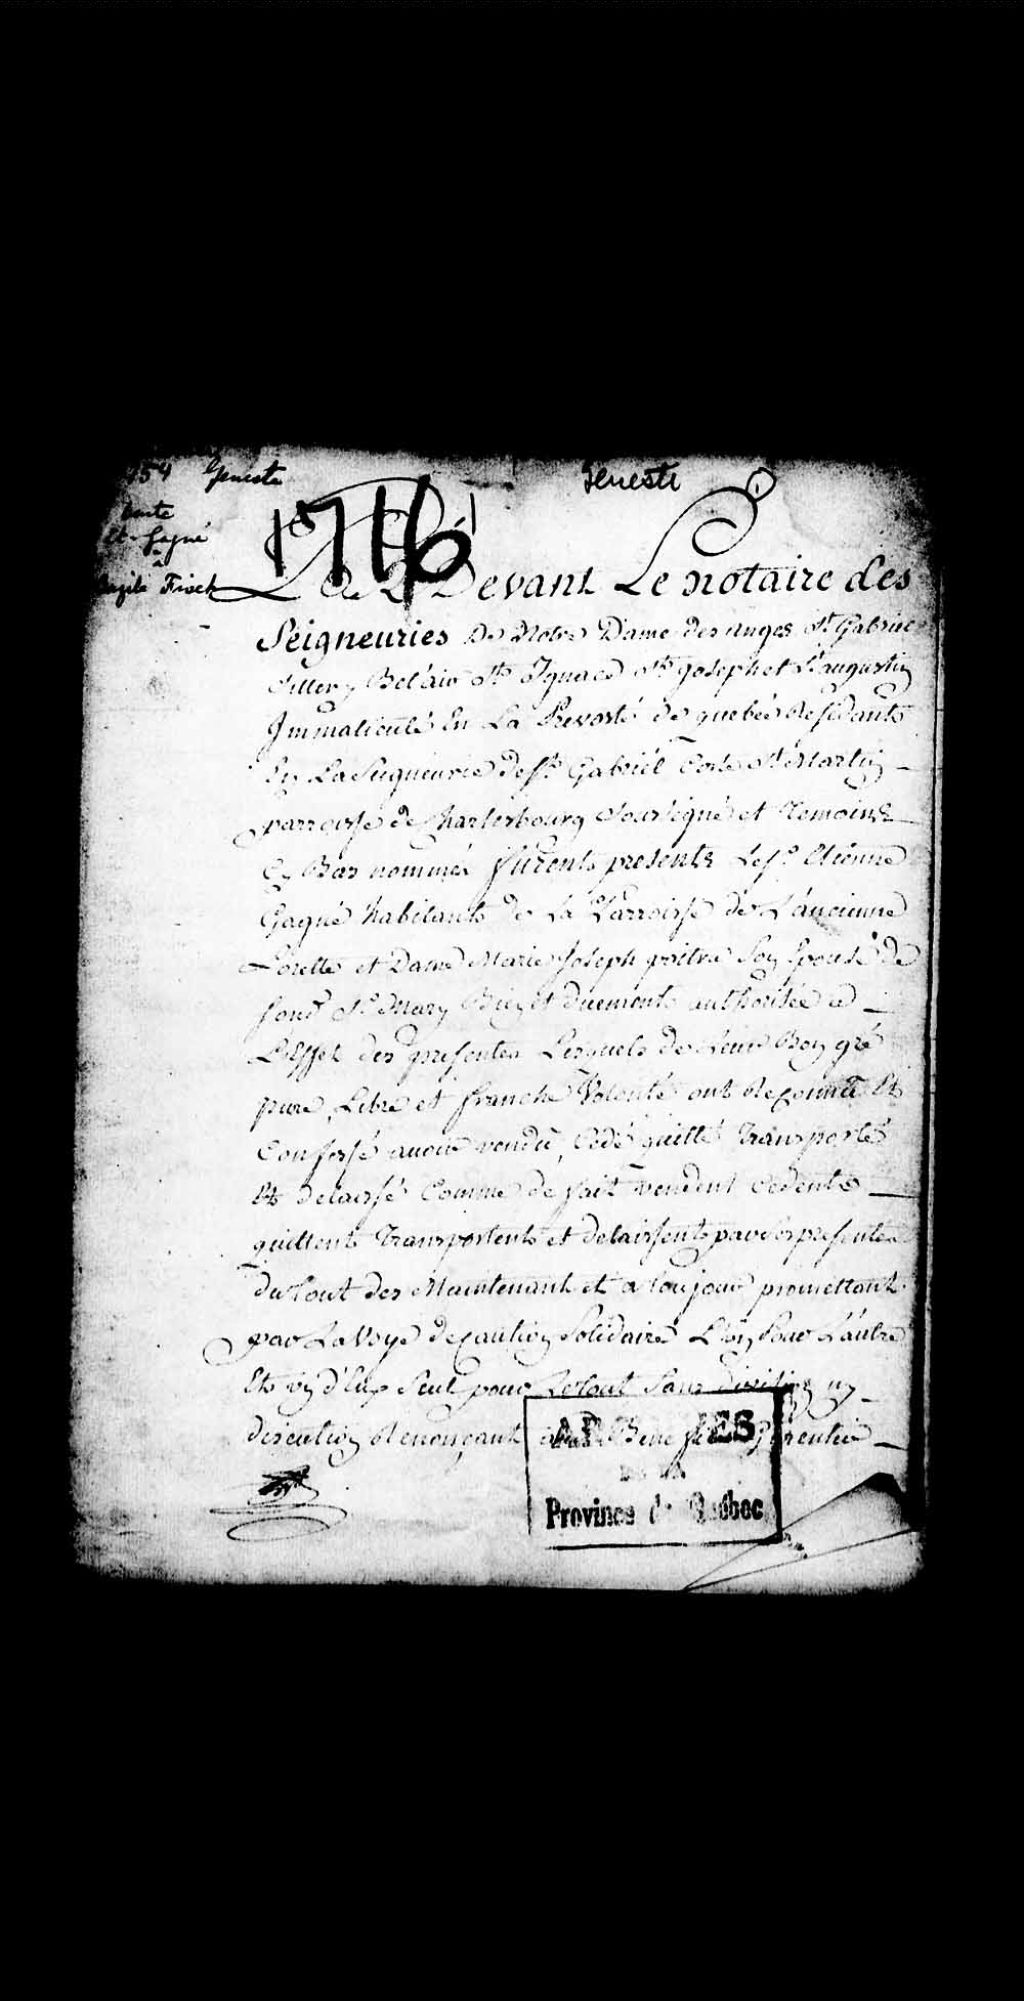 Geneste
Geneste
1716
Gagné
à
Devant Le notaire des
Seigneuries De Notre Dame des anges St. Gabriel
Sillery Bel'air St. Ignace St. Joseph et St augustin
Immatículé En La Prevosté de quebec Residants
En La Seigneurie de St. Gabriel Coste St Martin
parroisse de Charlesbourg Soussigné et Temoins
Cy Bas nommés furents presents Le Sr. Etienne
Gagné habitants de La Parroisse de L'ancienne
Lorette et Dame Marie Joseph poitra Son Epouse de
Luy duement authorisée a
L'Effet des presentes Lesquels de Leur Bon gré
pure, Libre et franche Volonté ont Reconnu Et
Confessé avoir vendu, Cédé quitté Transporté
Et delaissé Comme de fait vendent Cedents
quittent Transportents et delaissents par ces presentes
du tout des Maintenant et a toujour promettant
par La Voye de Caution Solidaire L'un pour L'autre
Et un d'Eux Seul pour Le tout Sans division ny
discution Renonçant
Province de Québec